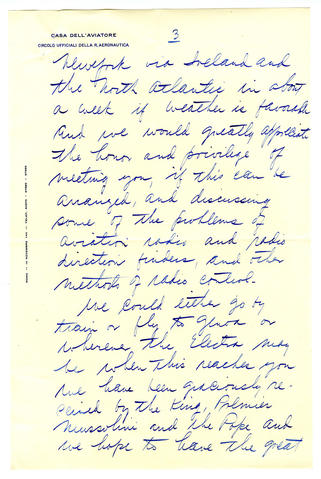 CASA DELL'AVIATORE
CIRCOLO UFFICIALI DELLA R. AERONAUTICA
3
Newyork via Ireland and
the North Atlantic in about
a week if weather is favorable
And we would greatly appreciate
the honor and privilege of
meeting you, if this can be
arranged, and discussing
some of the problems of
aviation radio and radio
direction finders, and other
methods of radio control.
We could either go by
train or fly to Genoa or
wherever the Electra may
be when this reaches you
We have been graciously re-
ceived by the King, Premier
Mussolini and the Pope and
we hope to have the great